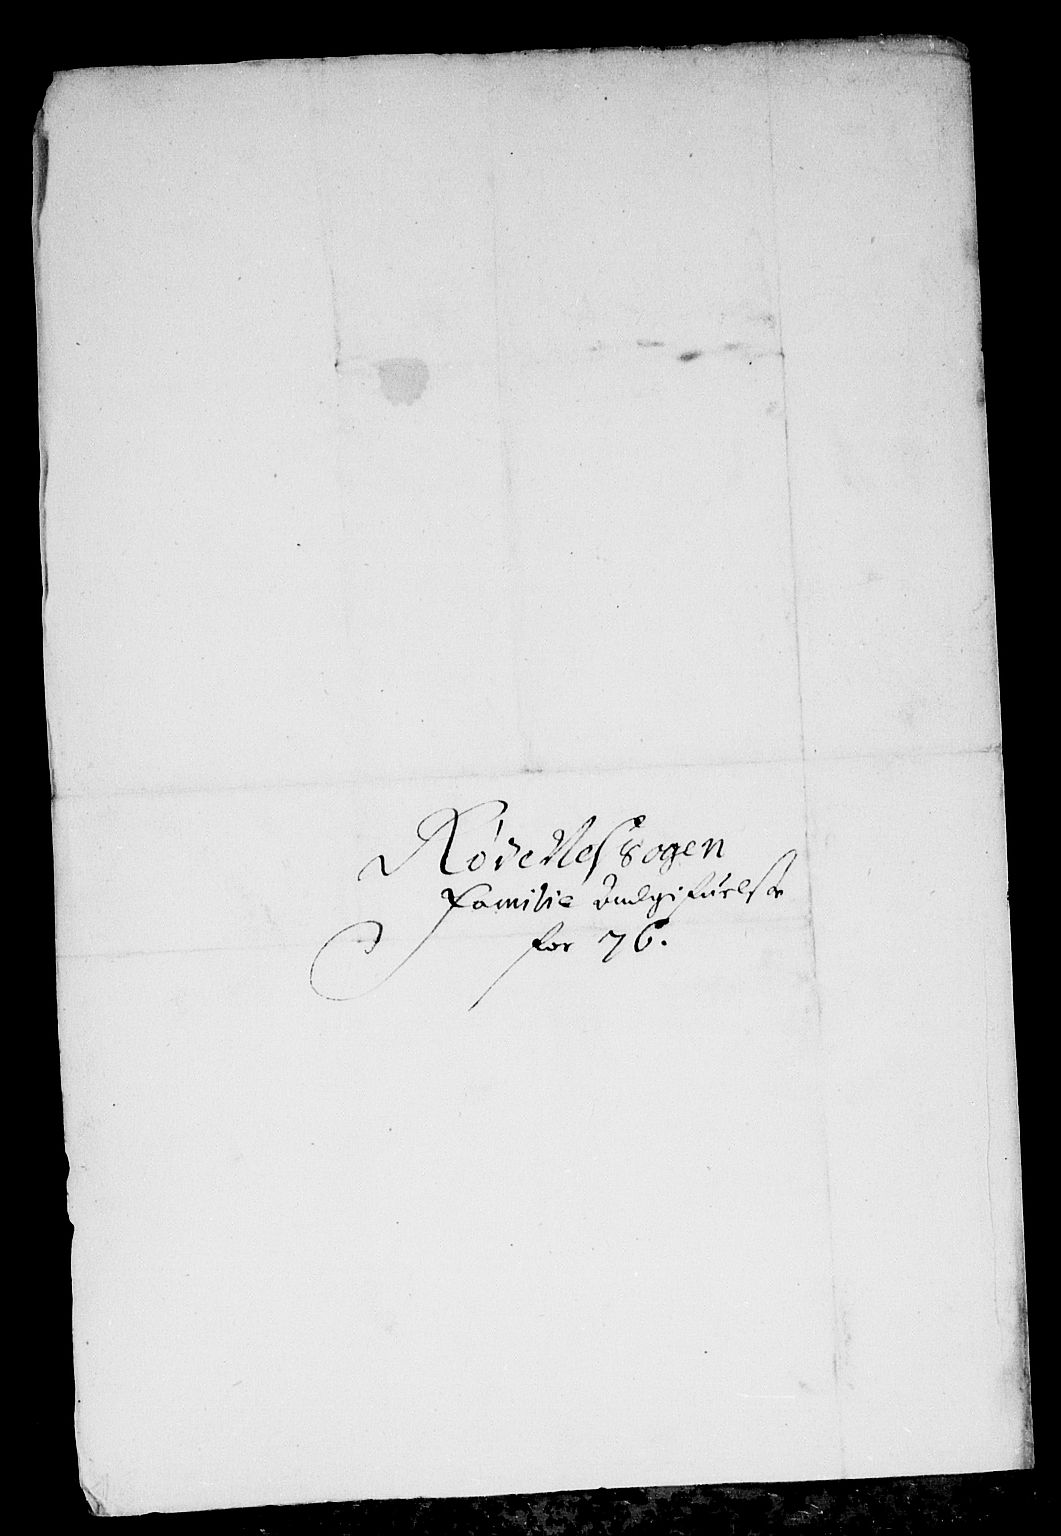 RødeNes Sogen
familie andgifuelse
for 76.